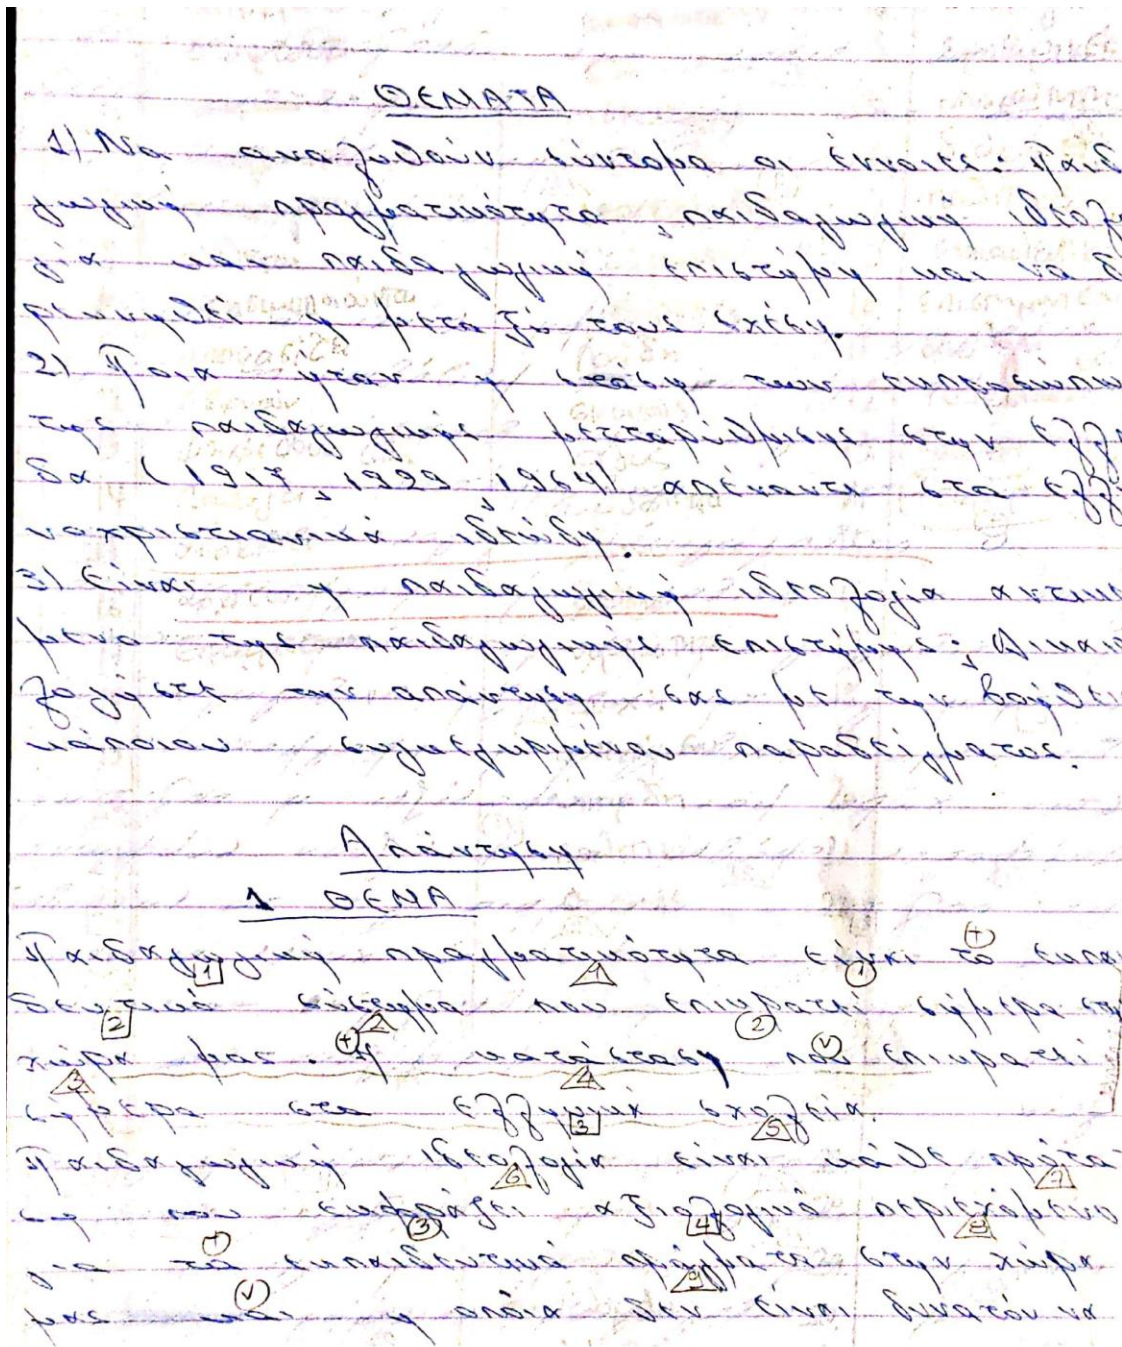 ΘΕΜΑΤΑ
1) Να αναλυθούν σύντομα οι έννοιες: Παιδ
γωγική πραγματικότητα, παιδαγωγική ιδεολ
γία και παιδαγωγική επιστήμη και να δ
ρευνηθεί η μεταξύ τους σχέση.
2) Ποια ηταν η στάση των εκπροσώπω
της παιδαγωγικής μετταρύθμισης στην ελλ
δα (1917, 1929, 1964) απέναντι στα ελλ
νοχριστιανικά ιδεώδη.
3) Είναι η παιδαγωγική ιδεολογία αντικε
μενο της παιδαγωγικής επιστήμης; Δικαι
λογήστε την απάντηση σας με την βοήθει
κάποιου συγκεκριμένου παραδείγματος.
Απάντηση
1 ΘΕΜΑ
Παιδαγωγική πραγματικότητα είναι το εκπα
+
1 1 1
δευτικό σύστημα που επικρατεί σήμερα στη
2 2 2
χώρα μας. Η κατάσταση που επικρατεί
+ V
3 4
σήμερα στα ελληνικά σχολεία.
3 5
Παιδαγωγική ιδεολογία είναι κάθε πρότα
6 7
ση που εκφράζει αξιολογικό περιεχόμενο
3 4 8
για τα εκπαιδευτικά πράγματα στην χώρα
+ 9
μας και η οποία δεν είναι δυνατόν να
V